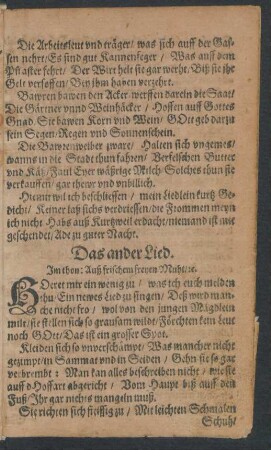 Die Arbeitsleut vnd träger/ was sich auff der Gas-
sen nehrt/ Es sind gut Kannenfeger/ Was auff dem
Pflaster fehrt/ Der Wirt helt sie gar werht/ Biß sie jhr
Gelt versoffen/ Bey jhm haben verzehrt.
Bawren bawen den Acker/ werffen darein die Saat/
Die Gärtner vnnd Weinhäcker/ Hoffen auff Gottes
Gnad. Sie bawen Korn vnd Wein/ GOtt geb darzu
sein Segen/ Regen vnd Sonnenschein.
Die Bawrenweiber zware/ Halten sich vngemes/
wanns in die Stadt thun fahren/ Verfelschen Butter
vnd Käß/ Faul Eyer wäßrige Milch/ Solches thun sie
verkauffen/ gar thewr vnd vnbillich.
Hiemit wil ich beschliessen/ mein Liedlein kurtz Ge-
dicht/ Keiner laß sichs verdriessen/ die Frommen meyn
ich nicht/ Habs auß Kurtzweil erdacht/ niemand ist mit
geschendet/ Ade zu guter Nacht.
Das ander Lied.
Im thon: Auß frischem freyen Muht/ꝛc.
HOeret mir ein wenig zu/ was ich euch melden
thu/ Ein newes Lied zu singen/ Deß wird man-
che nicht fro/ wol von den jungen Mägdlein
mile/ sie stellen sich so grausam wild/ Förchten kein leut
noch GOtt/ Das ist ein grosser Spot.
Kleiden sich so vnverschämpt/ Was mancher nicht
gezimpt/ in Sammat vnd in Seiden/ Gehn sie so gar
verbrembt: Man kan alles beschreiben nicht/ wie sie
auff d Hoffart abgericht/ Vom Haupt biß auff den
Fuß/ Ihr gar nichts mangeln muß.
Sie richten sich fleissig zu/ Mit leichten Schmalen
Schuh/